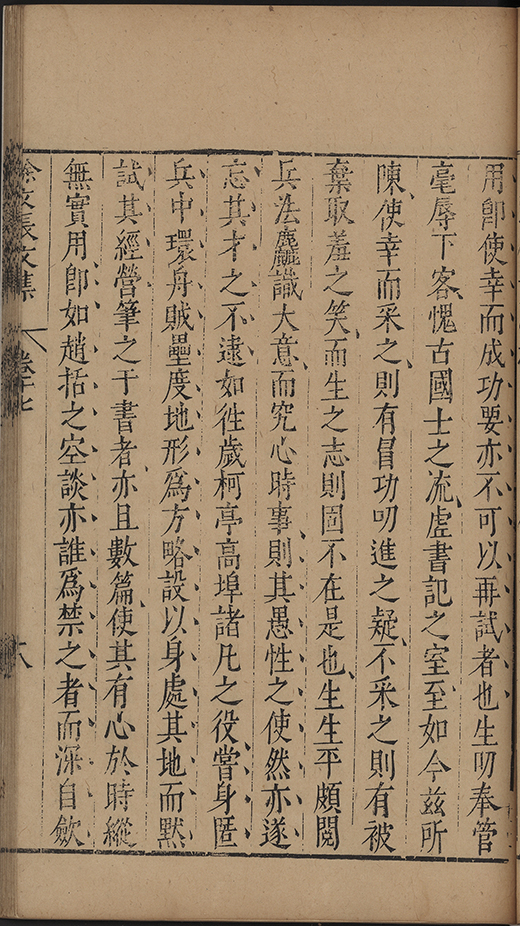 用即使幸而成功要亦不可以再試者也生叨奉管
毫辱下客愧古國士之流虛書記之室至如今茲所
陳使幸而采之則有冒功叨進之疑不采之則有被
棄取羞之笑而生之志則固不在是也生生平頗閱
兵法麤識大意而究心時事則其愚性之使然亦遂
忘其才之不逮如徃歲柯亭高埠諸凡之役嘗身匿
兵中環舟賊壘度地形爲方略設以身處其地而默
試其經營筆之于書者亦且數篇使其有心於時縱
無實用即如趙括之空談亦誰爲禁之者而深自歛
徐文長文集
卷十七
八